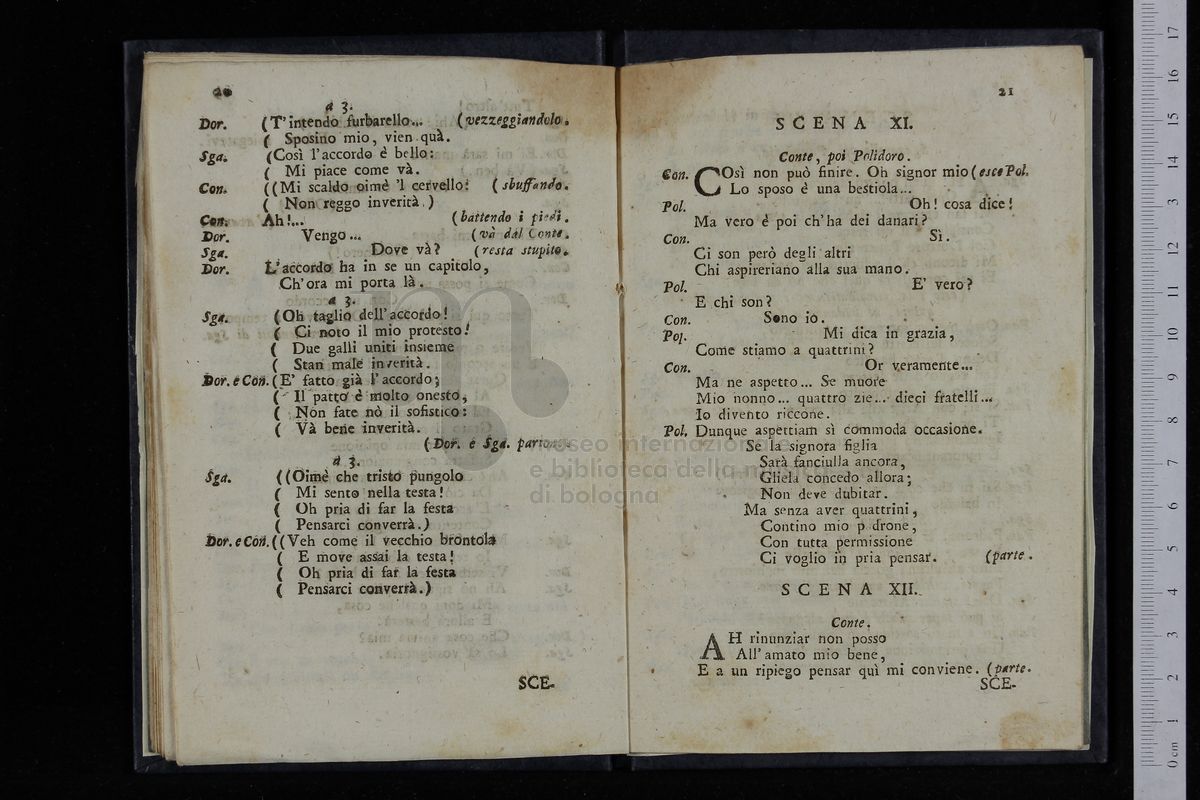 20
a 3.
Dor. (T'intendo furbarello... (vezzeggiandolo.
( Sposino mio, vien quà.
Sga. (Così l'accordo è bello:
( Mi piace come và.
Con. ((Mi scaldo oimè 'l cervello: ( sbuffando.
( Non reggo inverità.)
Con. Ah!... (battendo i piedi.
Dor. Vengo... (và dal Conte.
Sga. Dove và? (resta stupito.
Dor. L'accordo ha in se un capitolo,
Ch'ora mi porta là.
a 3.
Sga. (Oh taglio dell'accordo!
( Ci noto il mio protesto!
( Due galli uniti insieme
( Stan male inverità.
Dor. e Con. (E' fatto già l'accordo;
( Il patto è molto onesto,
( Non fate nò il sofistico:
( Và bene inverità.
(Dor. e Sga. partono.
a 3.
Sga. ((Oimè che tristo pungolo
( Mi sento nella testa!
( Oh pria di far la festa
( Pensarci converrà.)
Dor. e Con. ((Veh come il vecchio brontola
( E move assai la testa!
( Oh pria di far la festa
( Pensarci converrà.)
SCE-
21
SCENA XI.
Conte, poi Polidoro.
Con. COsì non può finire. Oh signor mio (esce Pol.
Lo sposo è una bestiola...
Pol. Oh! cosa dice!
Ma vero è poi ch'ha dei danari?
Con. Sì.
Ci son però degli altri
Chi aspireriano alla sua mano.
Pol. E' vero?
E chi son?
Con. Sono io.
Pol. Mi dica in grazia,
Come stiamo a quattrini?
Con. Or veramente...
Ma ne aspetto... Se muore
Mio nonno... quattro zie... dieci fratelli...
Io divento riccone.
Pol. Dunque aspettiam sì commoda occasione.
Se la signora figlia
Sarà fanciulla ancora,
Gliela concedo allora;
Non deve dubitar.
Ma senza aver quattrini,
Contino mio p drone,
Con tutta permissione
Ci voglio in pria pensar. (parte.
SCENA XII.
Conte.
AH rinunziar non posso
All'amato mio bene,
E a un ripiego pensar quì mi conviene. (parte.
SCE-
museo internazionale
e biblioteca della musica
di bologna
0 cm 1 2 3 4 5 6 7 8 9 10 11 12 13 14 15 16 17